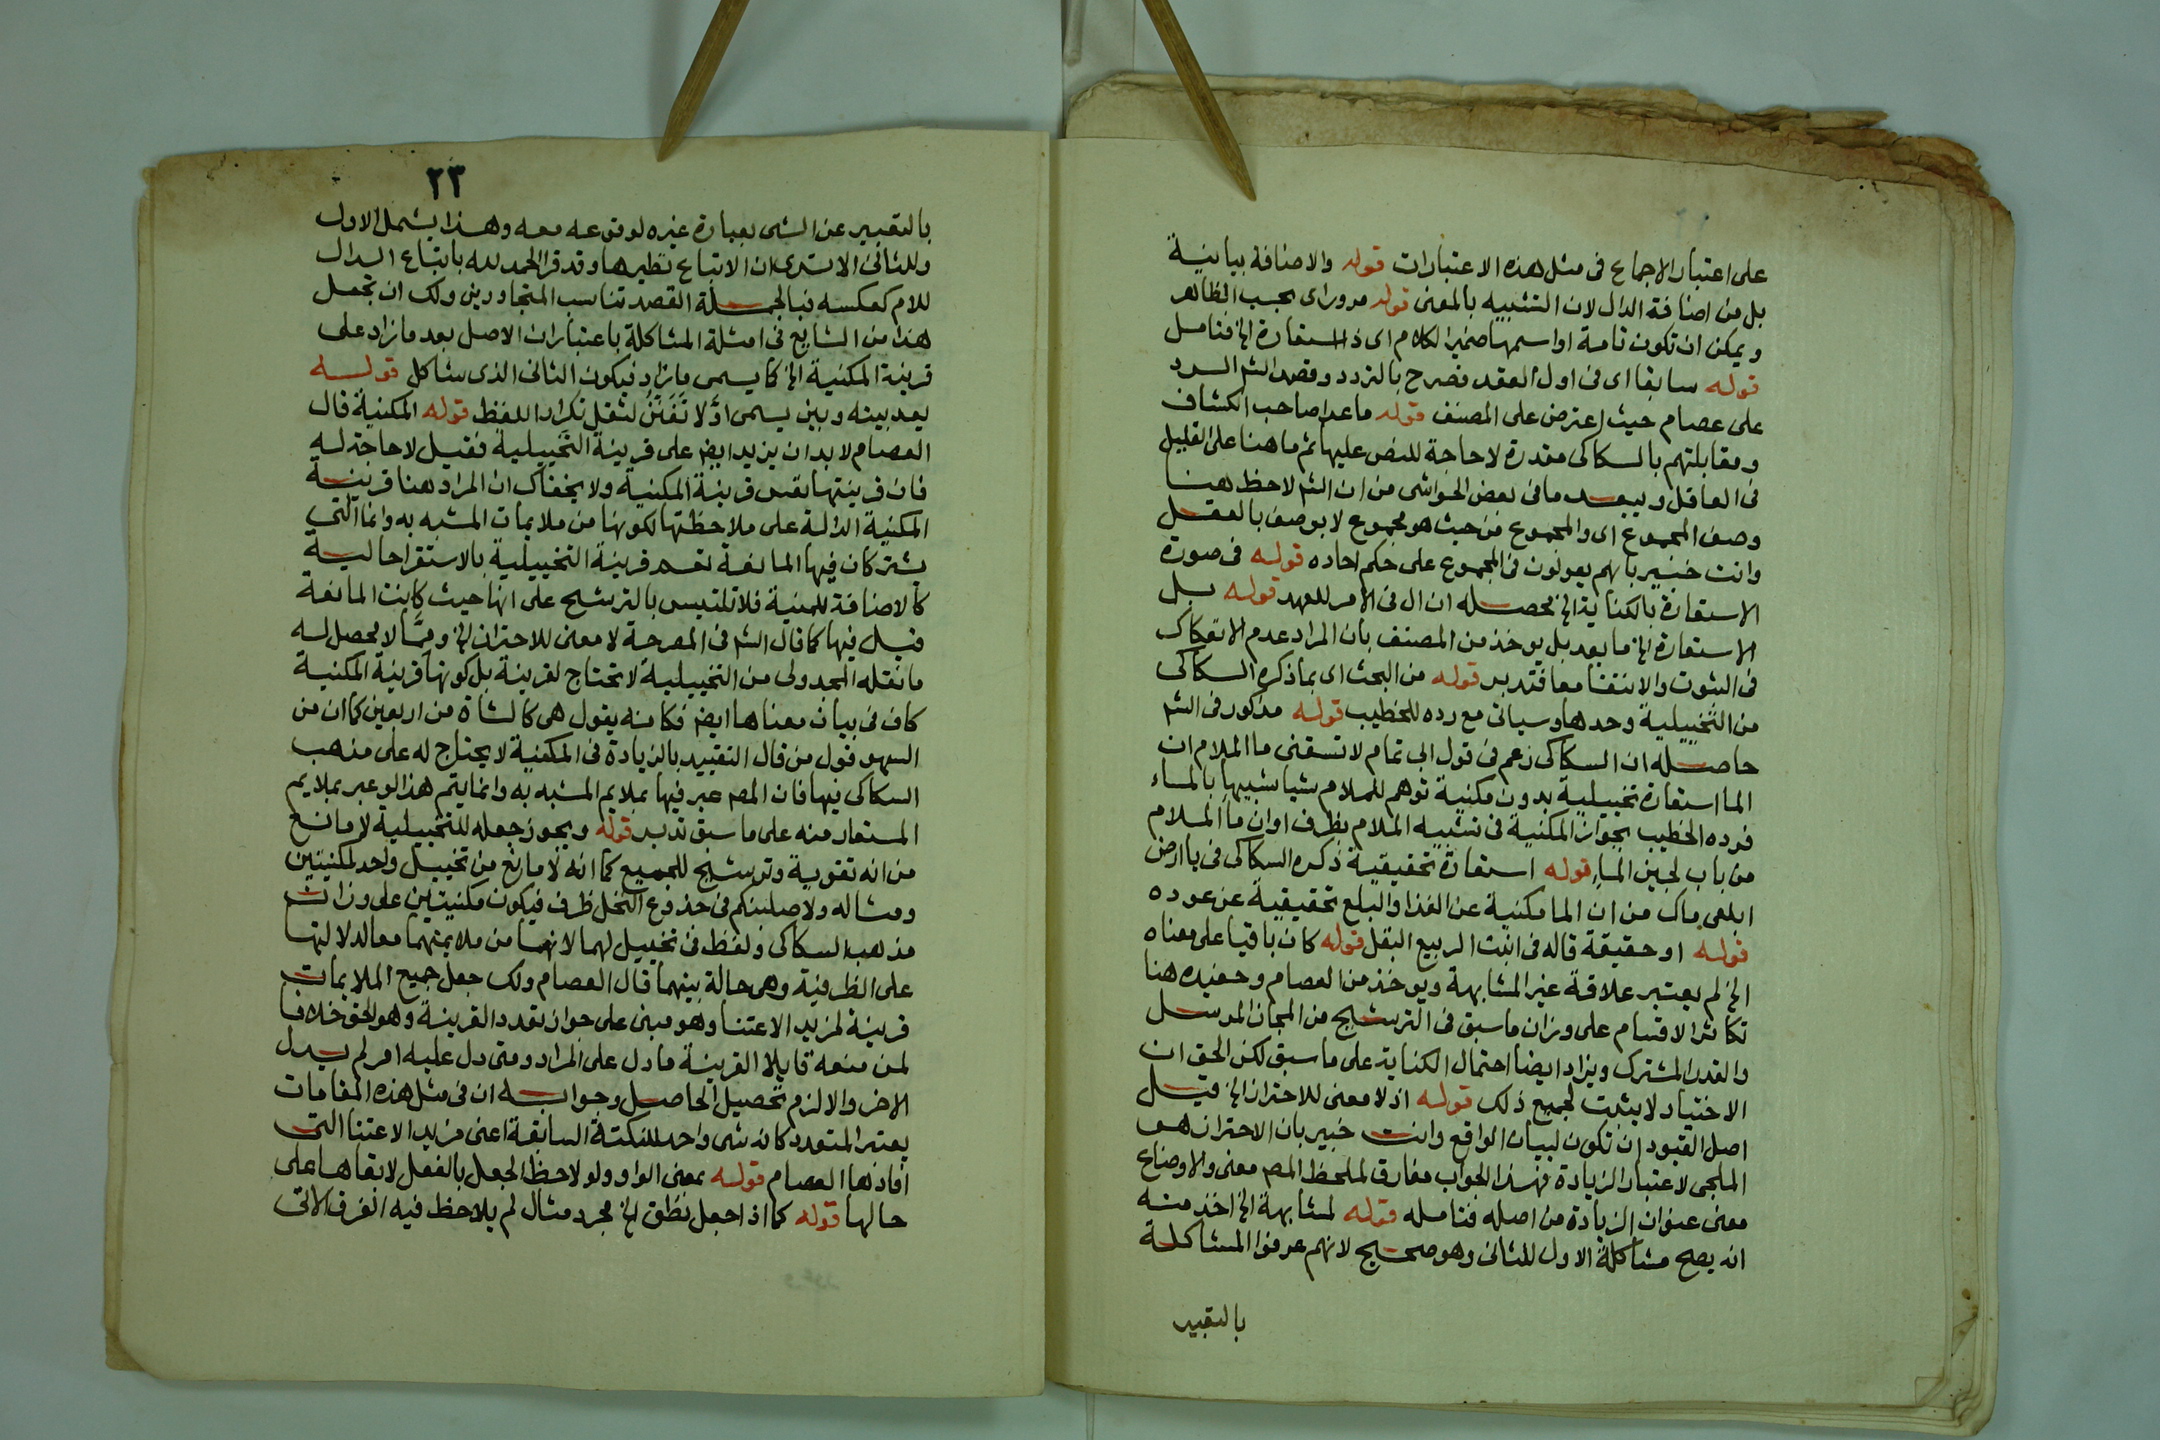 على اعتبار الاجماع فى مثل هذه الاعتبارات قوله والاضافة بيانية
بل من اضافة الدال لان التشبيه بالمعنى قوله مرور اى بحسب الظاهر
ويمكن ان تكون تامة او اسمها ضمير الكلام اى ذا استعارة الخ فتامل
قوله سابقا اى فى اول العقد فصرح بالتردد وقصد الشم السرد
على عصام حيث اعترض على المصنف قوله ماعدا صاحب الكشاف
ومقابلتهم بالسكاكى مقدرة لا حاجة للنص عليها ثم ما هنا على القليل
فى العاقل ويبعد ما فى بعض الحواشى من ان الشم لاحظ هنا
وصف المجموع اى والمجموع من حيث هو مجموع لا يوصف بالعقل
وانت خبير بانهم يعولون فى المجموع على حكم احاده قوله فى صورة
الاستعارة بالكناية الخ محصله ان ال فى الامر للعهد قوله بل
الاستعارة الخ ما بعد بل يوخذ من المصنف بان المراد عدم الانفكاك
فى الثبوت والانتفا معا فتدبر قوله من البحث اى بما ذكره السكاكى
من التخييلية وحدها وسياتى مع رده للخطيب قوله مذكور فى الشم
حاصله ان السكاكى زعم فى قول ابى تمام لا تسقنى ما الملام ان
الما استعارة تخييلية بدون مكنية توهم للملام شيا شبيها بالماء
فرده الخطيب بجواز المكنية فى تشبيه الملام بظرف او ان ما الملام
من باب لجين الماء قوله استعارة تحقيقية ذكره السكاكى فى يا ارض
ابلعى ماك من ان الما مكنية عن الغذا والبلع تحقيقية عن عوده
قوله او حقيقة قاله فى انبت الربيع البقل قوله كان باقيا على معناه
الخ لم يعتبر علاقة غير المشابهة ويوخذ من العصام وحفيده هنا
تكاثر الاقسام على وزان ما سبق فى الترشيح من المجاز المرسل
والقدر المشترك ويزاد ايضا احتمال الكناية على ما سبق لكن الحق ان
الاختيار لا يثبت لجميع ذلك قوله اذ لا معنى للاحتراز الخ قيل
اصل القيود ان تكون لبيان الواقع وانت خبير بان الاحتراز هو
الملجى لاعتبار الزيادة فهذا الجواب مفارق لملحظ المصم معنى والاوضاع
معنى عنوان الزيادة من اصله فتامله قوله لمشابهة الخ اخذ منه
انه يصح مشاكلة الاول للثانى وهو صحيح لانهم عرفوا المشاكلة
بالتعبير
٢٣
بالتعبير عن الشى بعبارة غيره لوقوعه معه وهذا يشمل الاول
وللثانى الا ترى ان الاتباع نظيرها وقد قرا الحمد لله باتباع الدال
للام كعكسه فبالجملة القصد تناسب المتجاورين ولك ان تجعل
هذا من الشايع فى امثلة المشاكلة باعتبار ان الاصل بعد ما زاد على
قرينة المكنية الخ كا يسمى ما زاد فيكون الثانى الذى شاكل قوله
بعد بينه وبين يسمى اوَّلا تَفَنَّنُ لثقل تكرار اللفظ قوله المكنية قال
العصام لا بد ان يزيد ايضم على قرينة التخييلية فقيل لا حاجة له
فان قرينتها نفس قرينة المكنية ولا يخفاك ان المراد هنا قرينة
المكنية الدالة على ملاحظتها لكونها من ملايمات المشبه به وانما التى
يشتركان فيها المانعة نعم قرينة التخييلية بالاستقرا حالية
كالاضافة للمنية فلا تلتبس بالترشيح على انها حيث كانت المانعة
قيل فيها كما قال الشم فى المصرحة لا معنى للاحتراز الخ وممَّا لا محصل له
ما نقله المجدولى من التخييلية لا تحتاج لقرينة بل كونها قرينة المكنية
كاف فى بيان معناها ايضم فكانه يقول هى كالشاة من اربعين كما ان من
السهو قول من قال التقييد بالزيادة فى المكنية لا يحتاج له على مذهب
السكاكى فيها فان المصم عبر فيها بملايم المشبه به وانما يتم هذا لو عبر بملايم
المستعار منه على ما سبق تدبر قوله ويجوز جعله للتخييلية لا مانع
من انه تقوية وترشيح للجميع كما انه لا مانع من تخييل واحد لمكنيتين
ومثاله ولاصلبنكم فى جذوع النخل ظرف فيكون مكنيتين على وزان
مذهب السكاكى ولفظ فى تخييل لهما لانها من ملايمتهما معا لدلالتها
على الظرفية وهى حالة بينهما قال العصام ولك جعل جميع الملايمات
قرينة لمزيد الاعتنا وهو مبنى على جواز تعدد القرينة وهو الحق خلافا
لمن منعه قايلا القرينة ما دل على المراد ومتى دل عليه امر لم يدل
الاخر والا لزم تحصيل الحاصل وجوابه ان فى مثل هذه المقامات
يعتبر المتعدد كانه شى واحد للنكتة السابقة اعنى مزيد الاعتنا التى
افادها العصام قوله بمعنى الواو ولو لاحظ الجعل بالفعل لابقاها على
حالها قوله كما اذا جعل نطق الخ مجرد مثال لم يلاحظ فيه الفرق الاتى